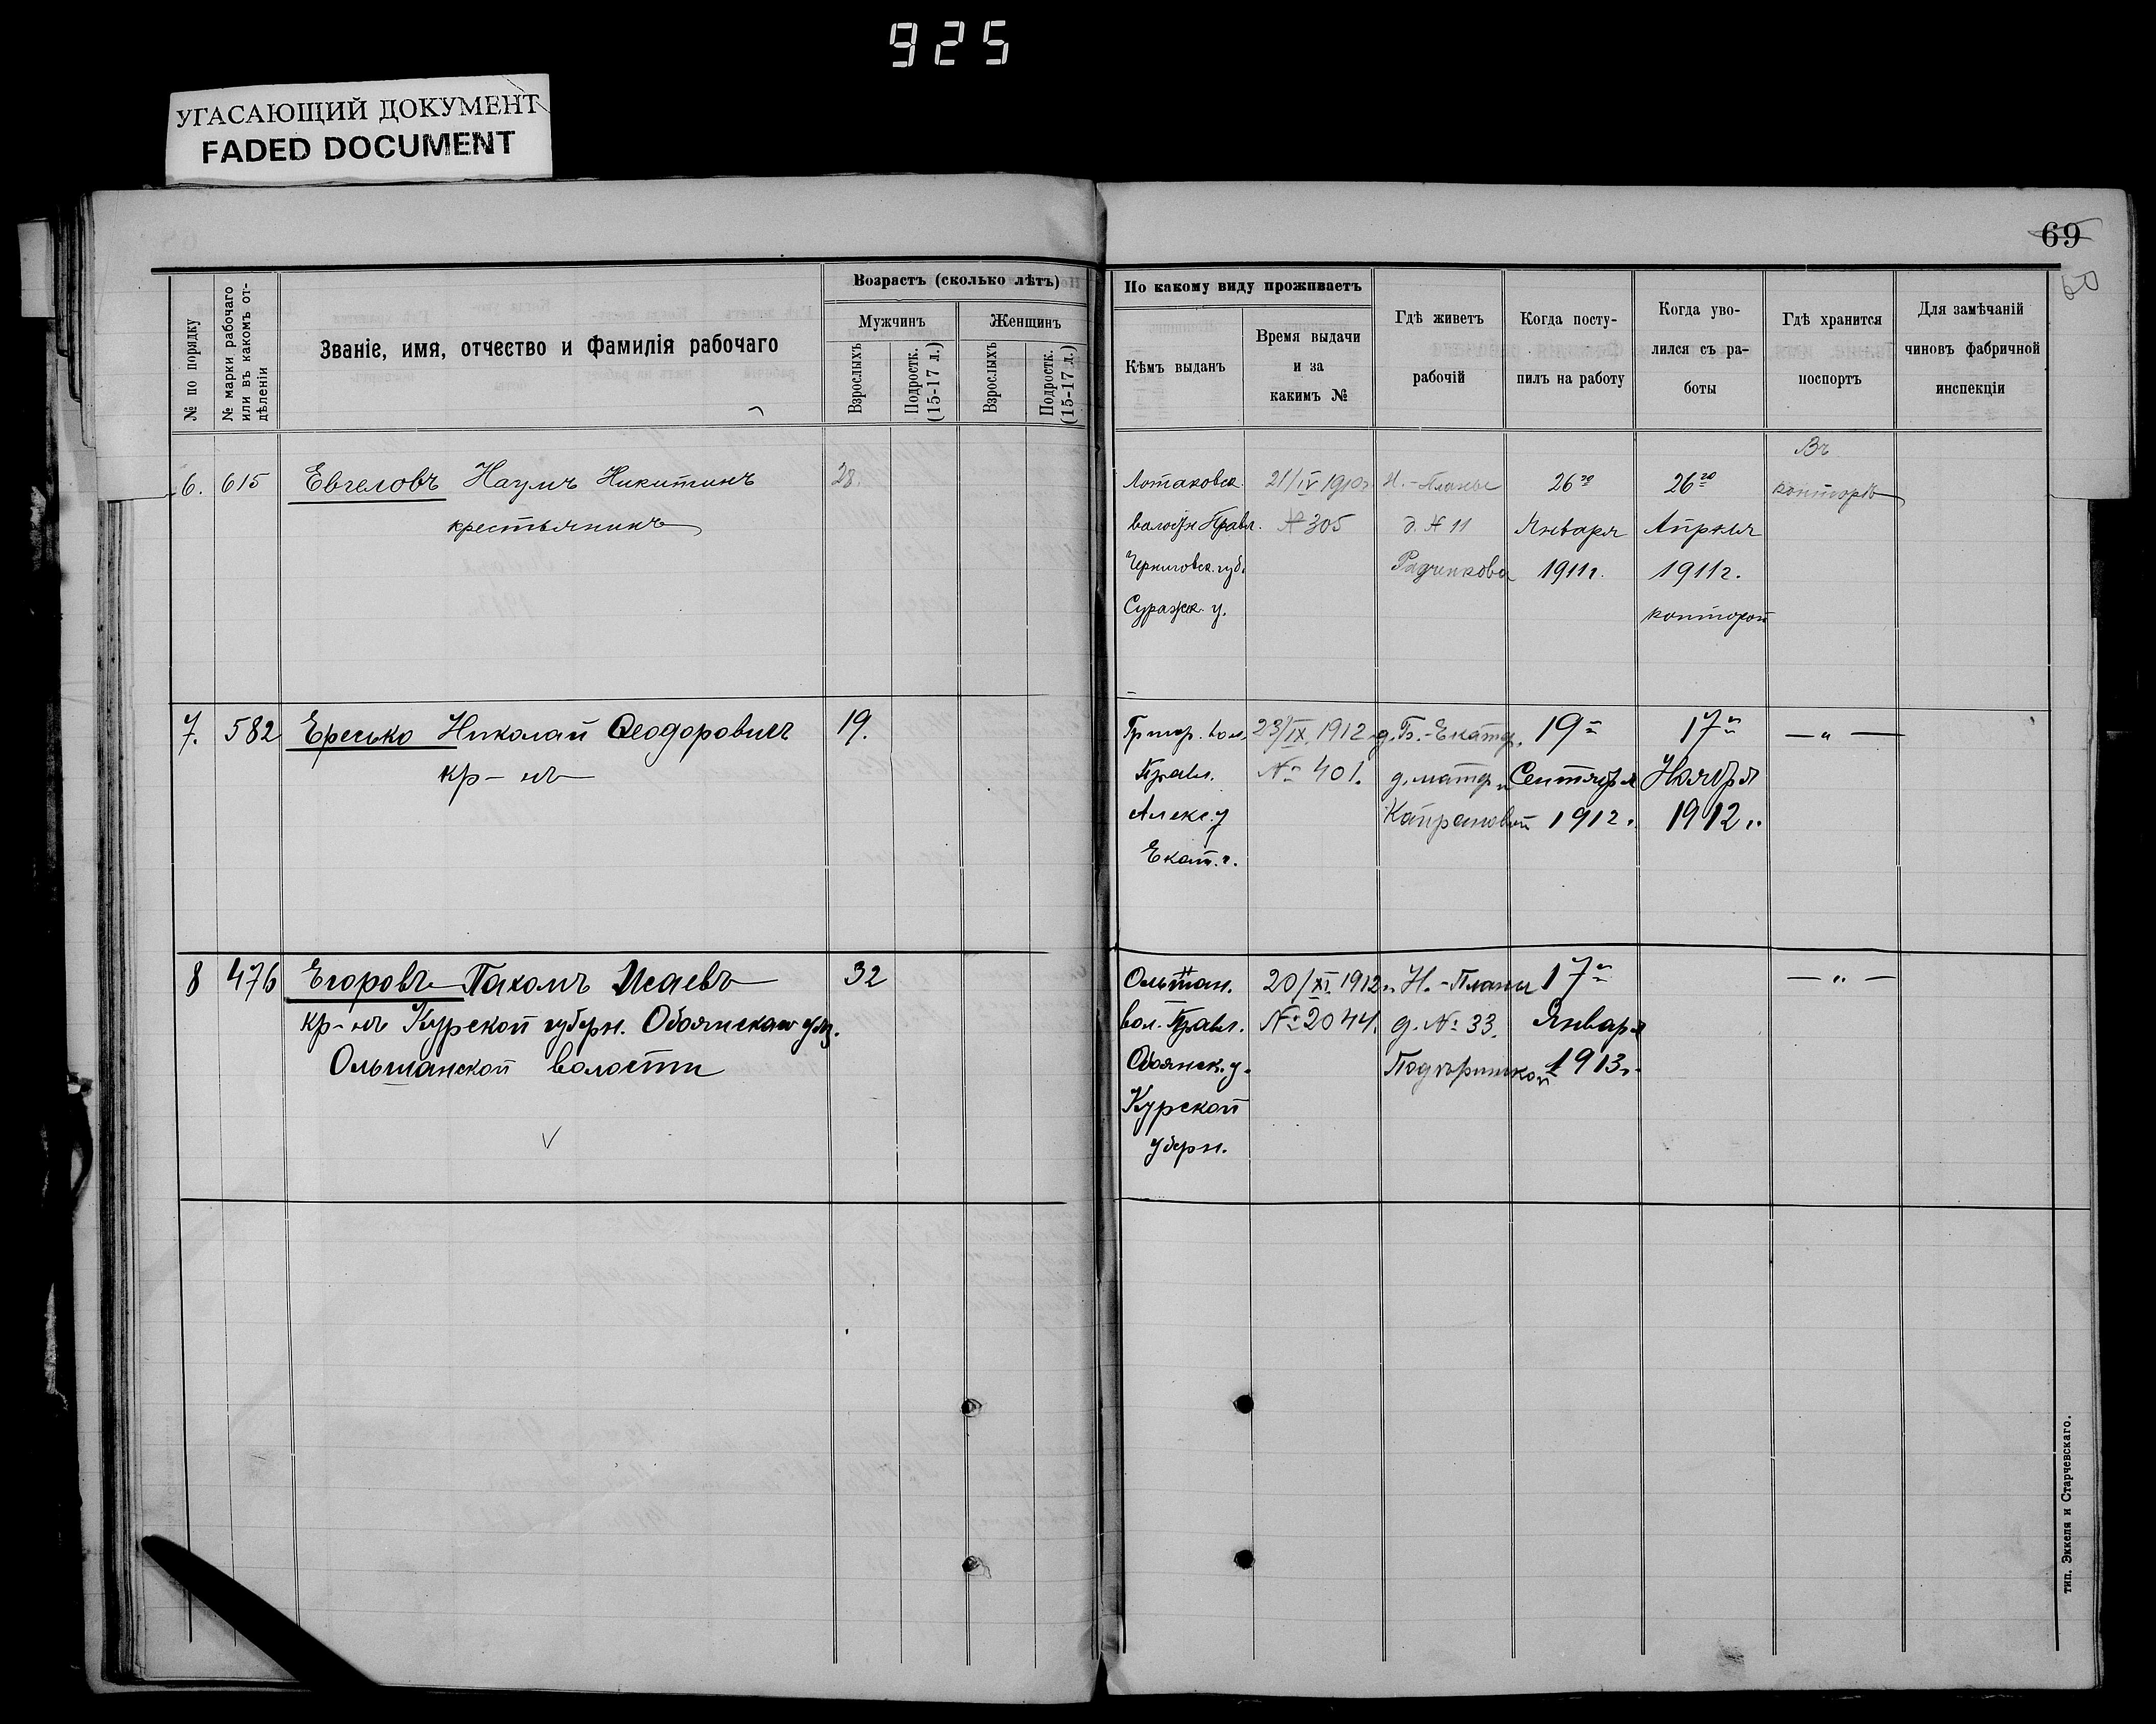 925
УГАСАЮЩИЙ ДОКУМЕНТ
FADED DOCUMENT
69
60
№ по порядку
№ марки рабочаго
или въ какомъ от-
дѣленіи
Званіе, имя, отчество и Фамилія рабочаго
Возрастъ (сколько лѣтъ)
Мужчинъ
Женщинъ
Взрослыхъ
Подростк.
(15-17 л.)
Взрослыхъ
Подростк.
(15-17 л.)
По какому виду проживаетъ
Кѣмъ выданъ
Время выдачи
и за
какимъ №
Гдѣ живетъ
рабочій
Когда посту-
пилъ на работу
Когда уво-
лился съ ра-
боты
Гдѣ хранится
поспортъ
Для замѣчаній
чиновъ фабричной
инспекціи
6. 615 Евгеловъ Наумъ Никитинъ 28.
крестьянинъ
Лотаковск.
волостн. Правл.
Черниговск. губ.
Суражск. у.
21/IV 1910г.
№ 305
Н.-Планы
д. № 11
Радченкова
26го
Января
1911г.
26го
Апрѣля
1911г.
конторой
Въ
конторѣ
7. 582 Ересько Николай Ѳеодоровичъ 19.
кр-нъ
Григор. вол.
Правл.
Алекс. у
Екат. г.
23/IX. 1912
№ 401.
д.матер.
Капрановой
19го
Сентября
1912.
17го
Ноября
1912г.
— „ —
8 476 Егоровъ Пахомъ Исаевъ 32
кр-нъ Курской губерн. Обоянскаго уѣз.
Ольшанской волости
Ольшан.
вол. Правл.
Обоянск. у.
Курской
губерн.
20/XI. 1912г.
№ 2044.
Н.-Планы
д. № 33.
17го
Января
1913г.
— „ —
тип. Эккеля и Старчевскаго.